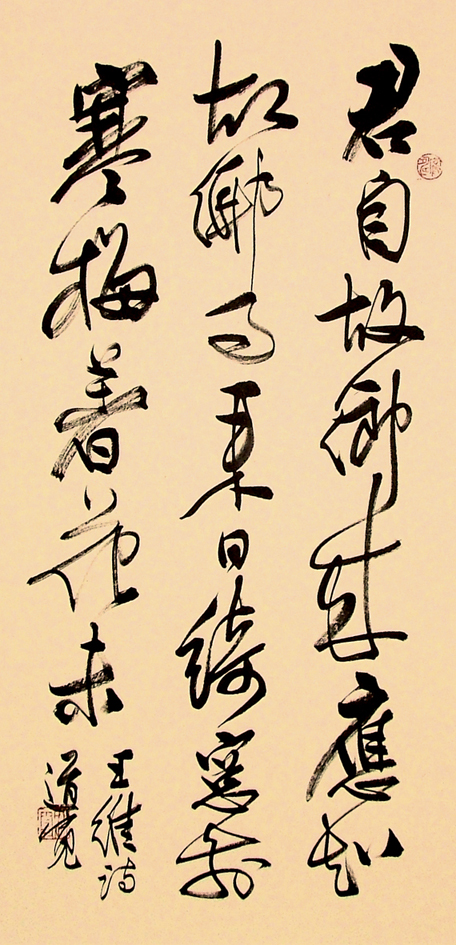 君自故鄉來應知
故鄉事來日綺窗前
寒梅着花未
王維詩
道